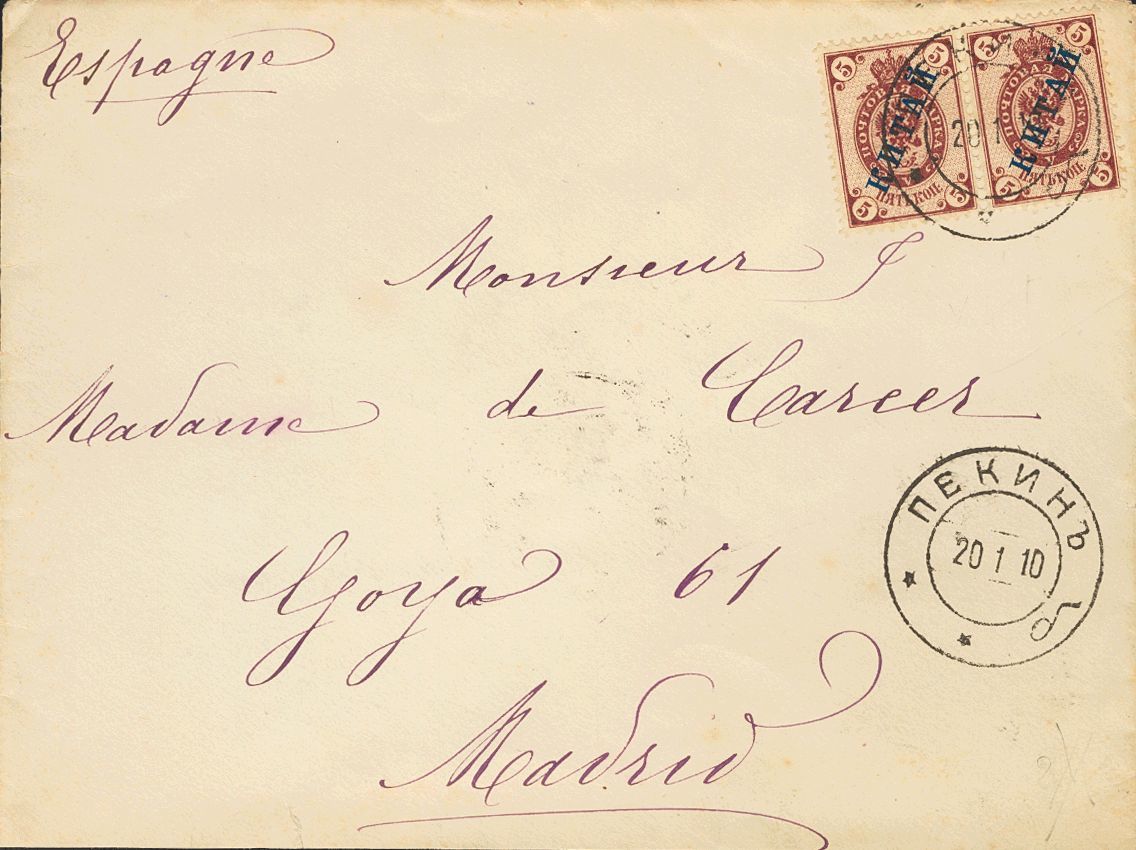 Espagne
5 5 5 5
ПОЧТОВАЯ МАРКА
ПЯТЬ КОП.
КИТАЙ
5 5 5 5
ПОЧТОВАЯ МАРКА
ПЯТЬ КОП.
КИТАЙ
20 1
Monsieur J
Madame de Carcer
ПЕКИНЪ
20 1 10
Goya 61
Madrid